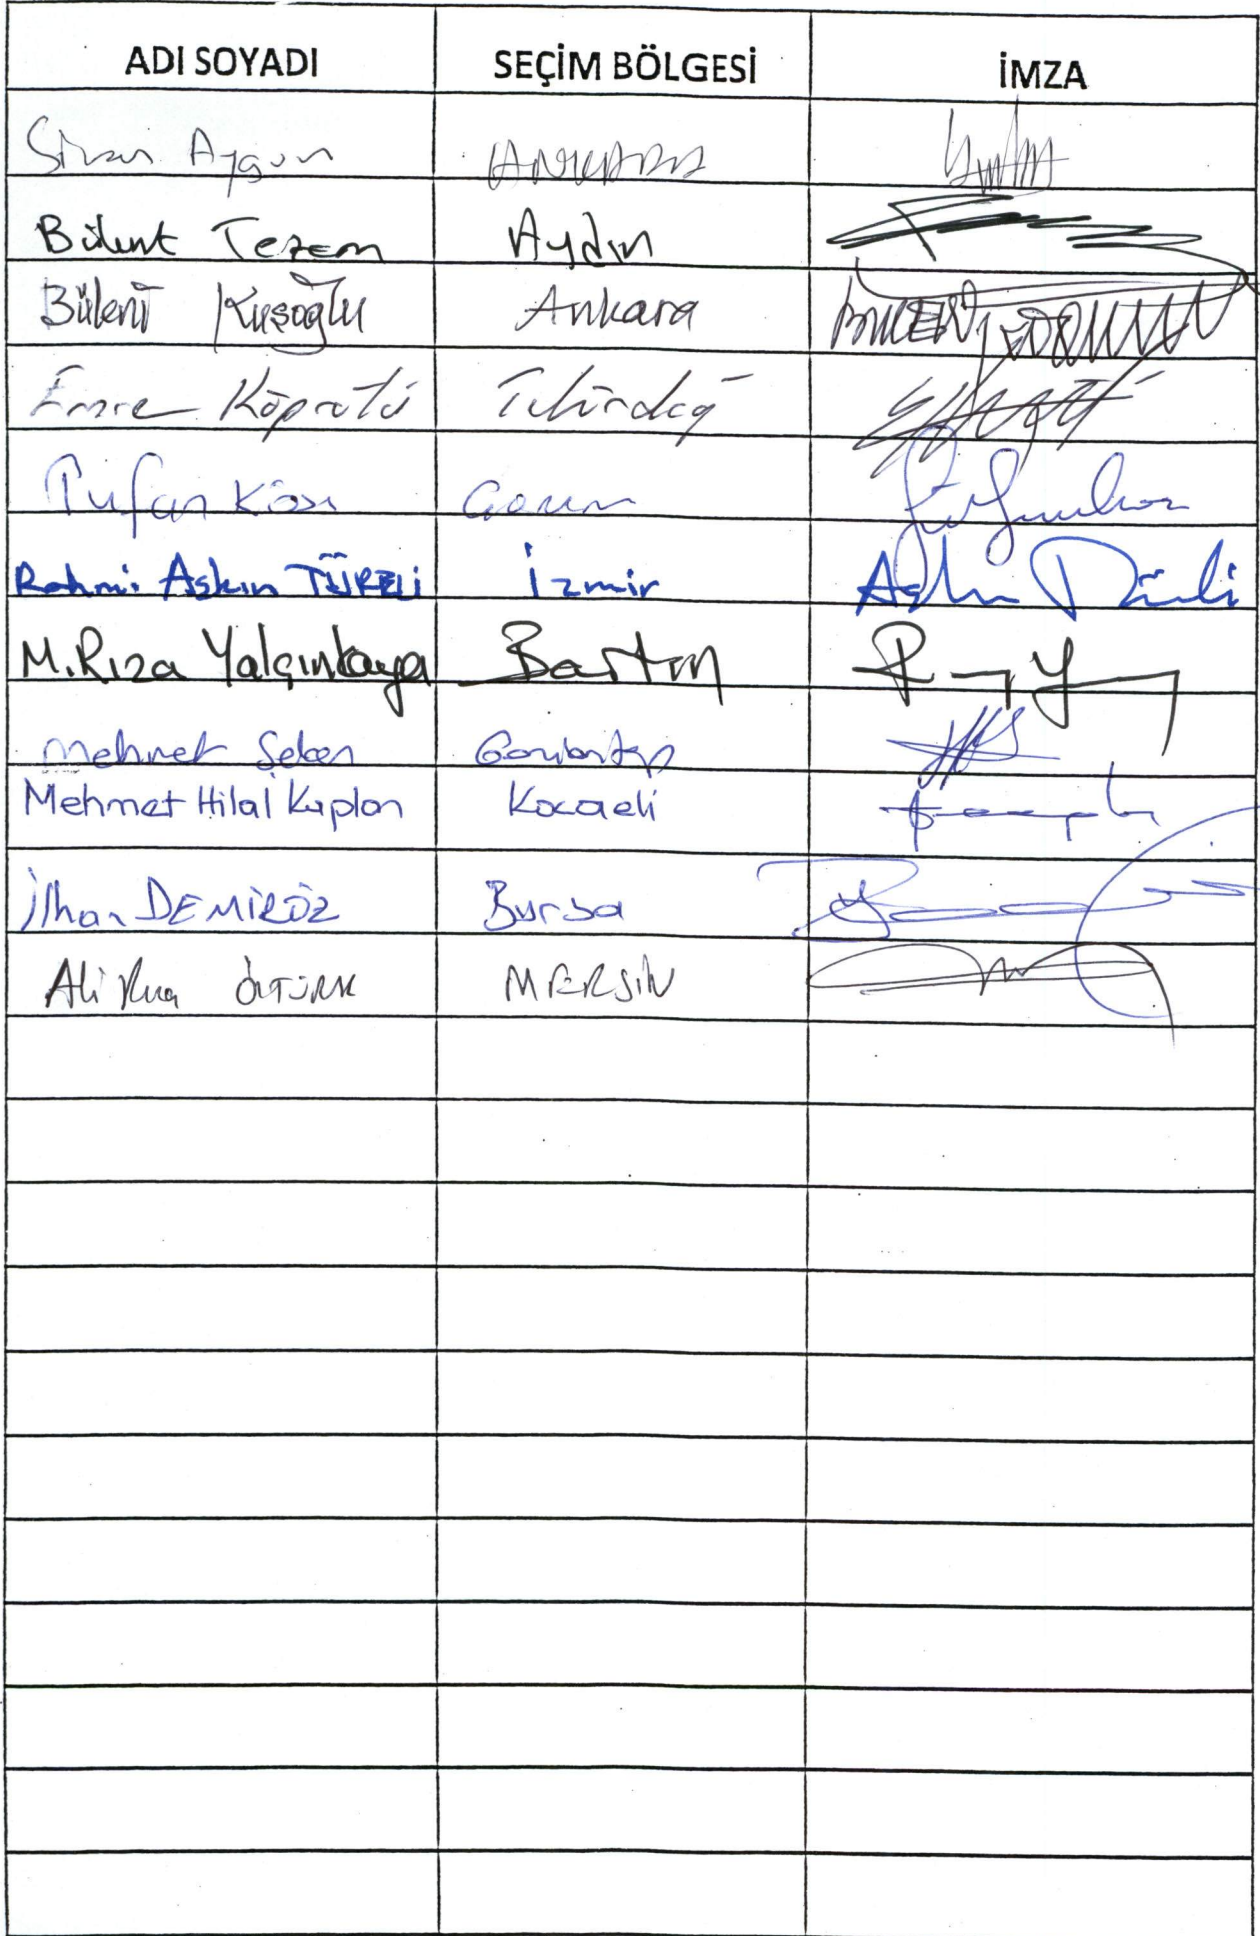 ADI SOYADI SEÇİM BÖLGESİ İMZA
Sinan Aygün ANKARA
Bülent Tezcan Aydın
Bülent Kuşoğlu Ankara
Emre Köprülü Tekirdağ
Tufan Köse Çorum
Rahmi Aşkın TÜRELİ İzmir
M.Rıza Yalçınkaya Bartın
Mehmet Şeker Gaziantep
Mehmet Hilal Kaplan Kocaeli
İlhan DEMİRÖZ Bursa
Ali Rıza ÖZTÜRK MERSİN